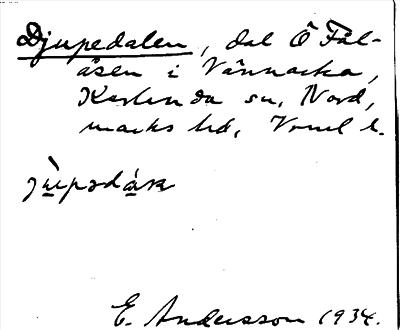 Djupedalen, dal Ö Fål-
åsen i Vännacka,
Karlanda sn, Nord,
marks hd, Vrml l.
jùpədàɽn
E. Andersson 1934.